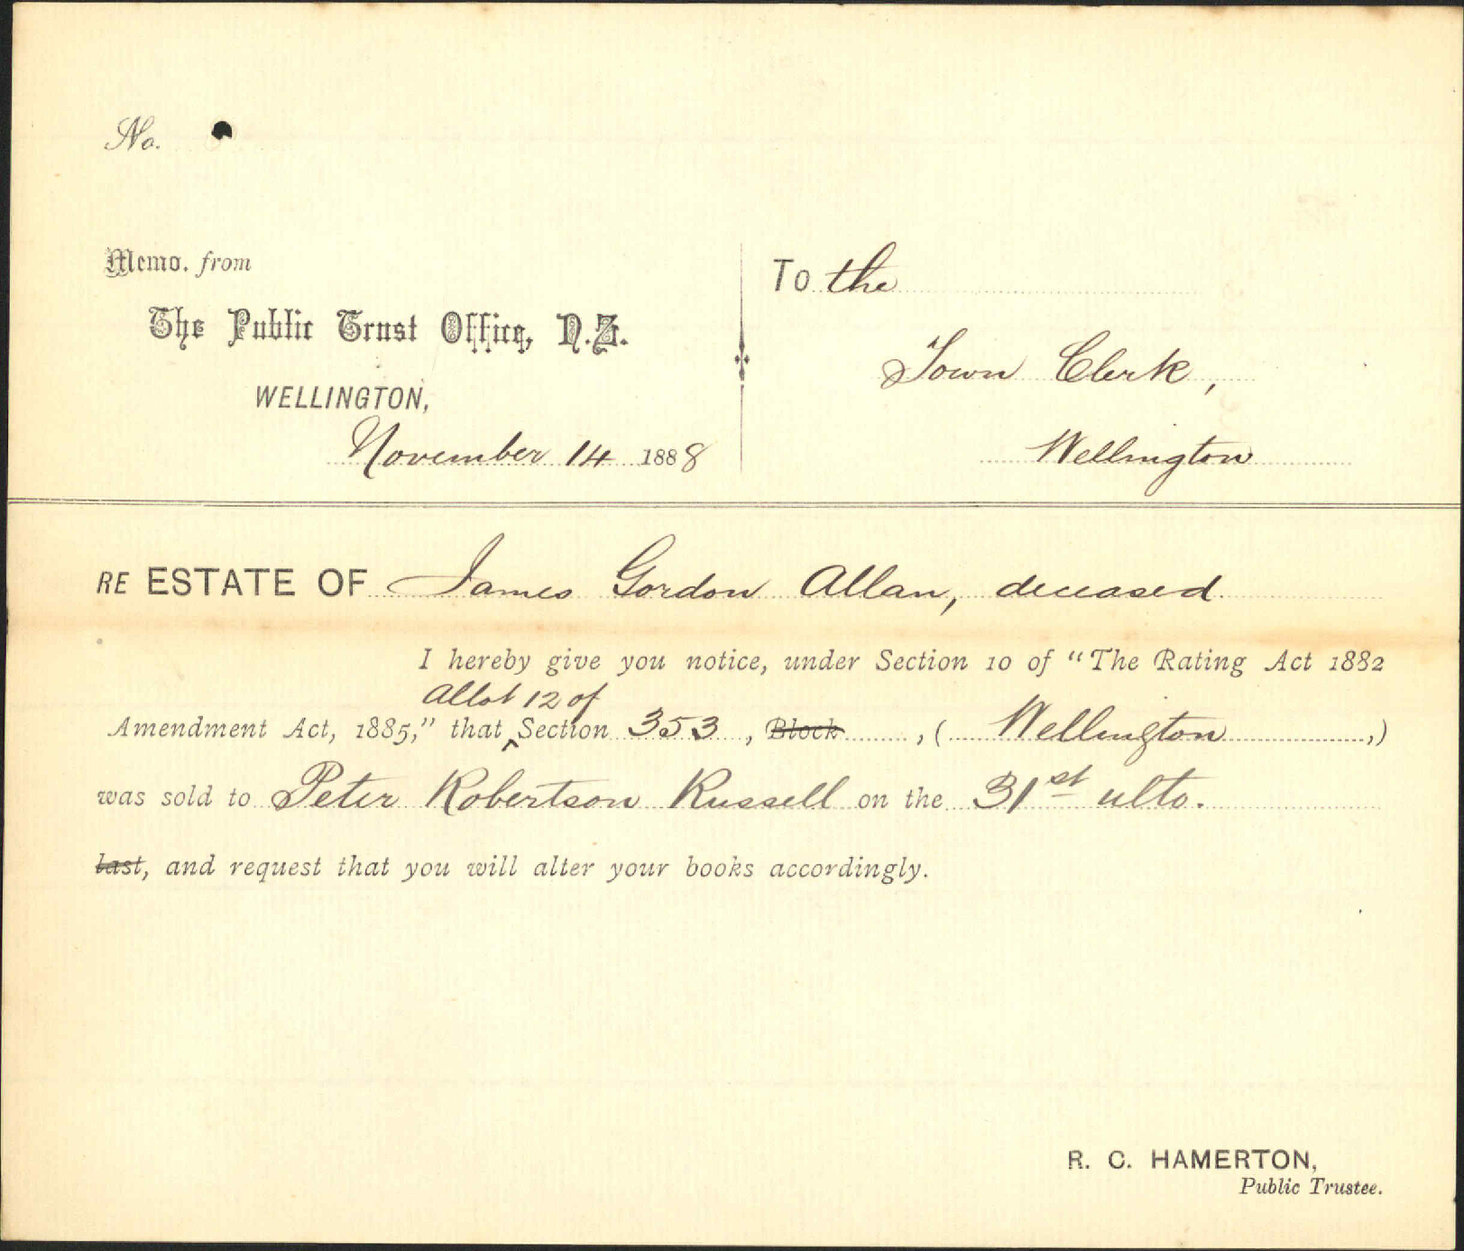 No.
Memo. from
The Public Trust Office, N.Z.
WELLINGTON,
November 14 1888
To the
Town Clerk,
Wellington
RE ESTATE OF James Gordon Allan, deceased.
I hereby give you notice, under Section 10 of "The Rating Act 1882
Allot 12 of
Amendment Act, 1885," that ‸ Section 353, Block, ( Wellington ,)
was sold to Peter Robertson Russell on the 31st ulto.
last, and request that you will alter your books accordingly.
R. C. HAMERTON,
Public Trustee.